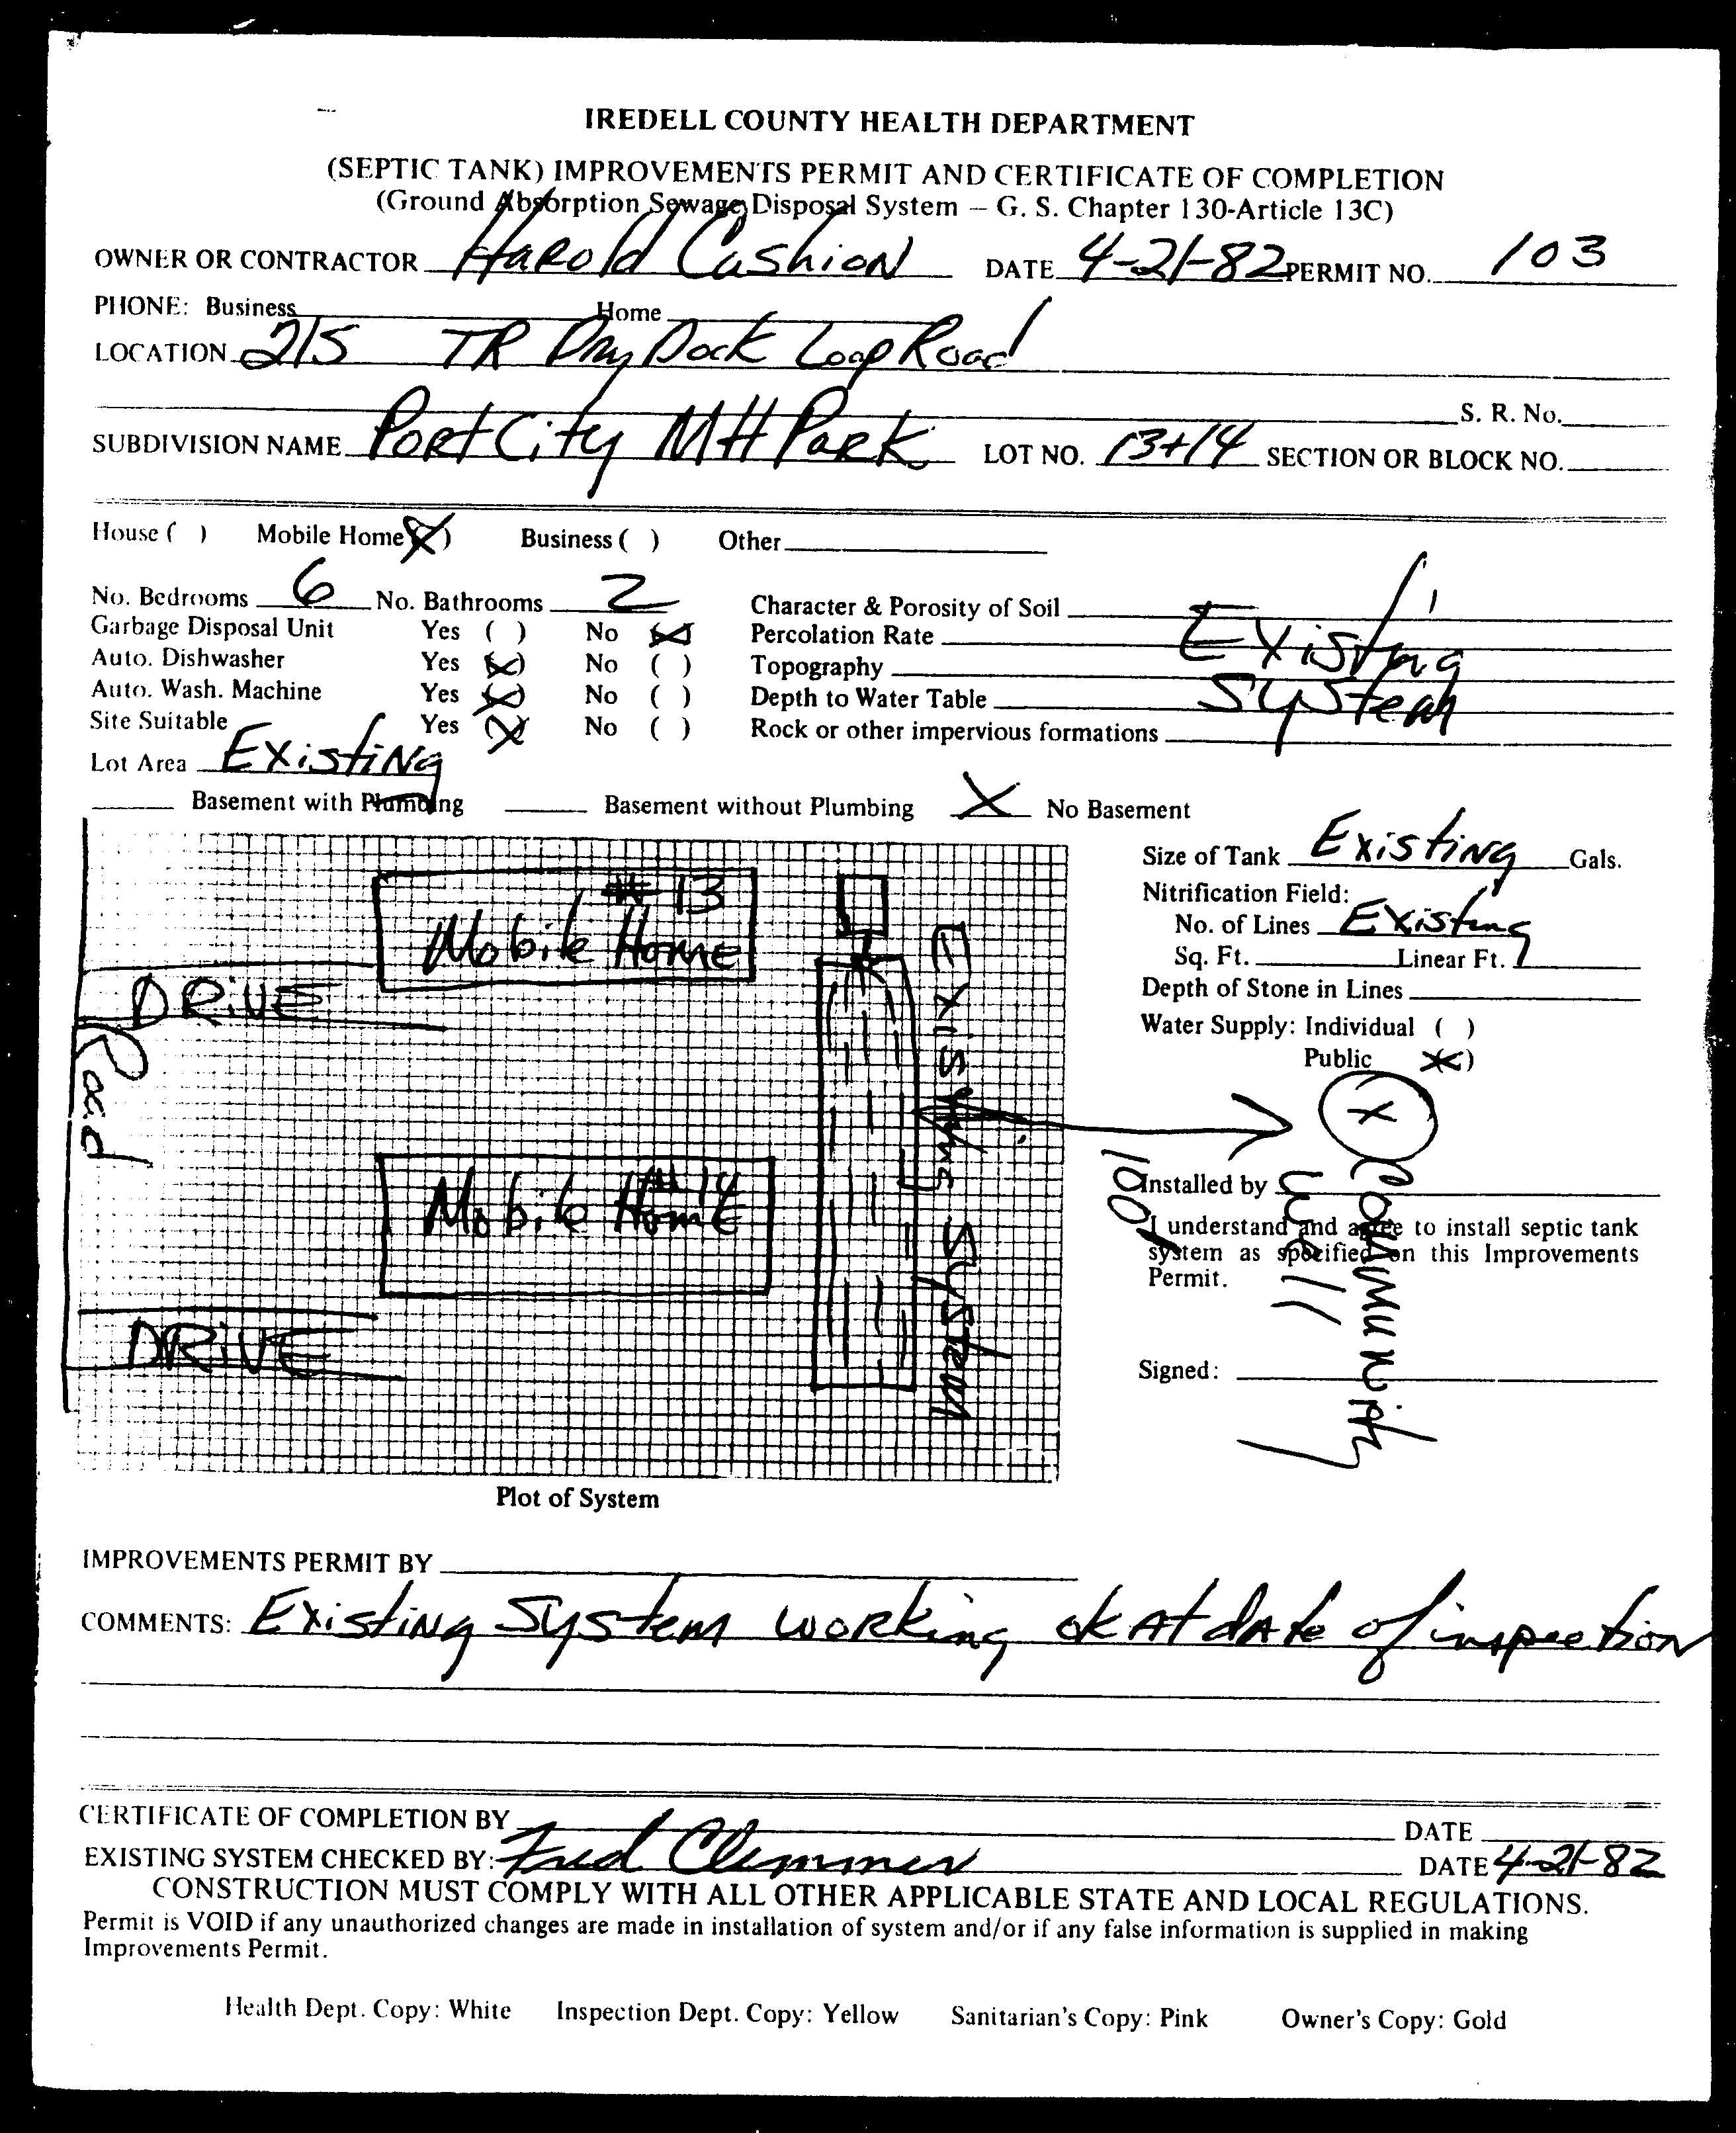 IREDELL COUNTY HEALTH DEPARTMENT
(SEPTIC TANK) IMPROVEMENTS PERMIT AND CERTIFICATE OF COMPLETION
(Ground Absorption Sewage Disposal System – G. S. Chapter 130-Article 13C)
OWNER OR CONTRACTOR Harold Cashion DATE 4-21-82 PERMIT NO. 103
PHONE: Business Home
LOCATION 21S TR Dry Dock Loop Road
S. R. No.
SUBDIVISION NAME Port City MH Park LOT NO. 13+14 SECTION OR BLOCK NO.
House ( ) Mobile Home (X) Business ( ) Other
No. Bedrooms 6 No. Bathrooms 2 Character & Porosity of Soil
Garbage Disposal Unit Yes ( ) No (X) Percolation Rate Existing
Auto. Dishwasher Yes (X) No ( ) Topography
Auto. Wash. Machine Yes (X) No ( ) Depth to Water Table System
Site Suitable Yes (X) No ( ) Rock or other impervious formations
Lot Area Existing
Basement with Plumbing Basement without Plumbing X No Basement
Size of Tank Existing Gals.
Nitrification Field:
No. of Lines Existing
Sq. Ft. Linear Ft.
Depth of Stone in Lines
Water Supply: Individual ( )
Public (X)
# 13
Mobile Home
DRIVE
Road
# 14
Mobile Home
DRIVE
Existing System
100'
X
Community
Well
Installed by
I understand and agree to install septic tank
system as specified on this Improvements
Permit.
Signed:
Plot of System
IMPROVEMENTS PERMIT BY
COMMENTS: Existing System working ok At date of inspection
CERTIFICATE OF COMPLETION BY DATE
EXISTING SYSTEM CHECKED BY: Fred Clemmer DATE 4-21-82
CONSTRUCTION MUST COMPLY WITH ALL OTHER APPLICABLE STATE AND LOCAL REGULATIONS.
Permit is VOID if any unauthorized changes are made in installation of system and/or if any false information is supplied in making
Improvements Permit.
Health Dept. Copy: White Inspection Dept. Copy: Yellow Sanitarian's Copy: Pink Owner's Copy: Gold